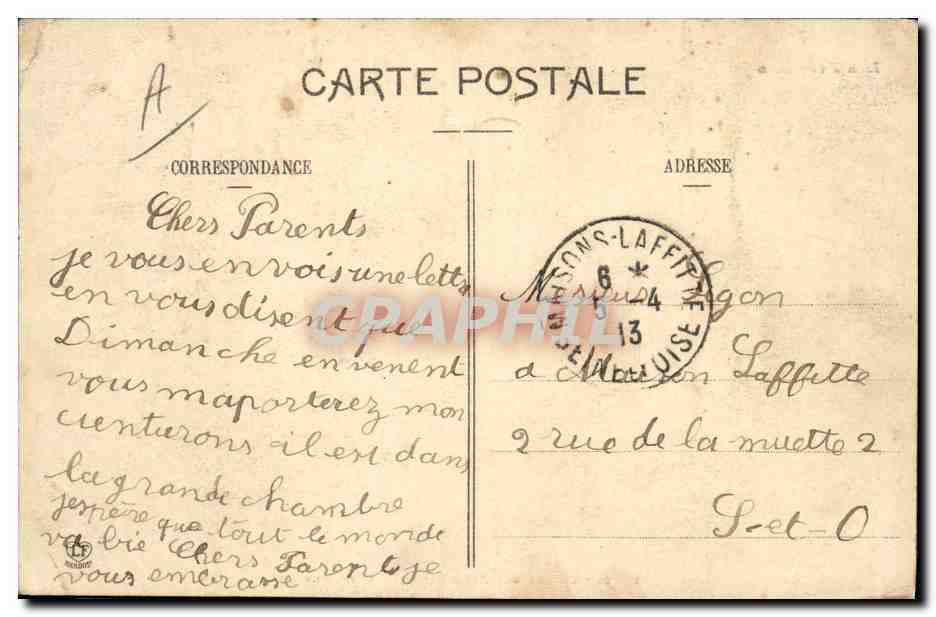 A
CARTE POSTALE
CORRESPONDANCE
Chers Parents
je vous envois une lettr
en vous disent que
Dimanche en venent
vous maporterez mon
cienturons il est dans
la grande chambre
jespère que tout le monde
va bie Chers Parent je
vous embrasse
ADRESSE
MAISONS-LAFFITTE
6 *
5 -4
13
SEINE-ET-OISE
Monsieur
a Maison Laffitte
2 rue de la muette 2
S-et-O
CPAPHIL